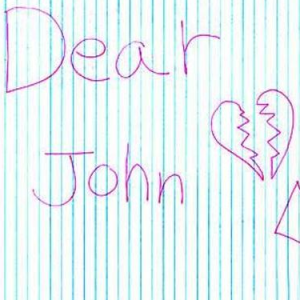 Dear
John